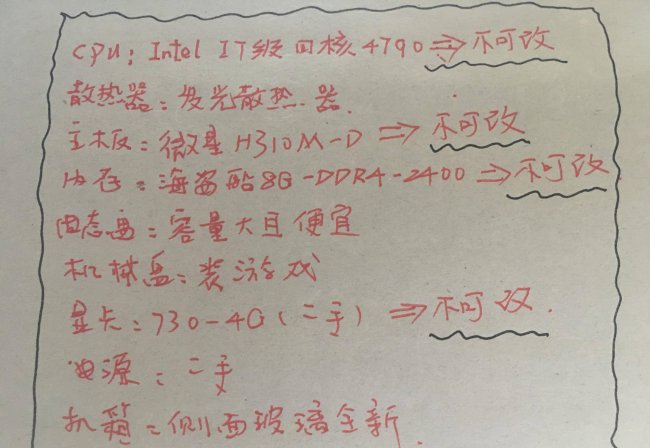 CPU: Intel I7级四核4790⇒不可改
散热器:发光散热器.
主板:微星H310M-D⇒不可改
内存:海盗船8G-DDR4-2400⇒不可改
固态盘:容量大且便宜
机械盘:装游戏
显卡:730-4G(二手)⇒不可改.
电源:二手
机箱:侧面玻璃全新.